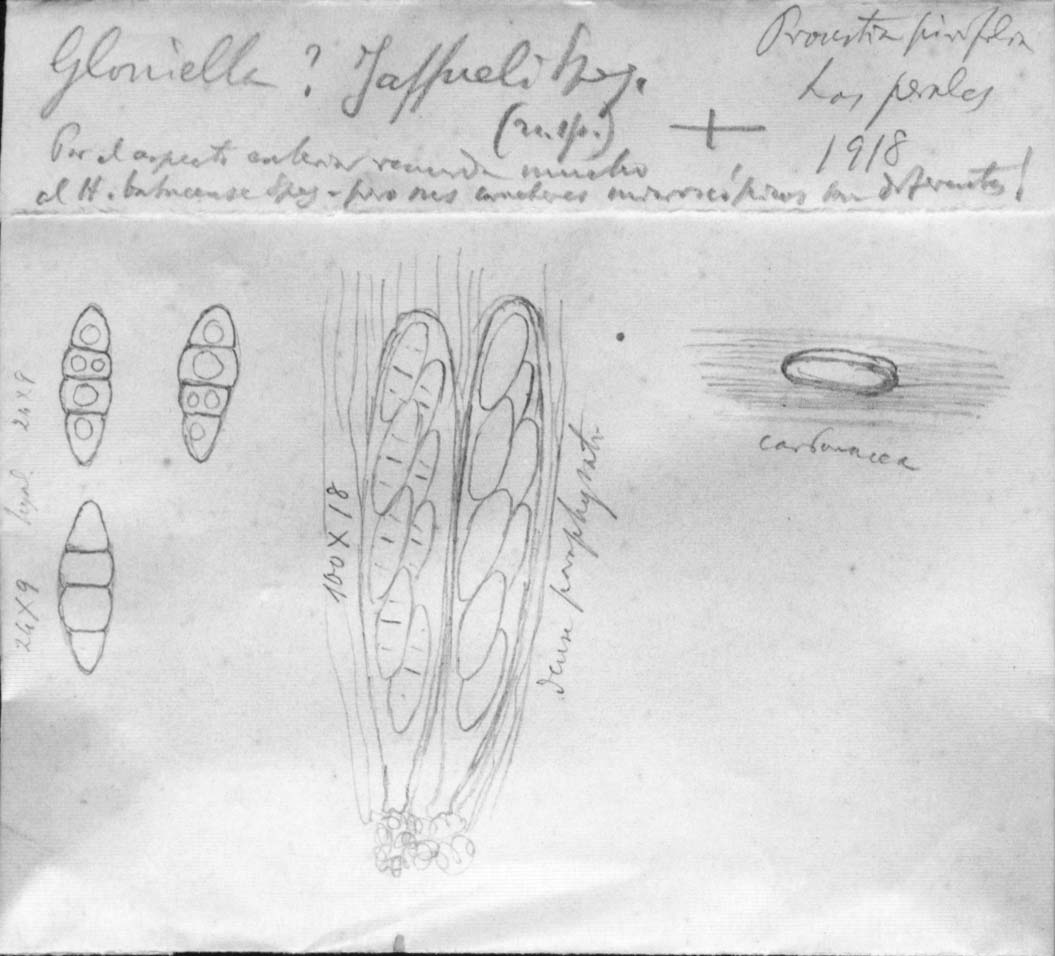 Gloniella ? Jaffueli Speg.
(n. sp.)
Proustia pirifolia
Los perales
1918
Por el aspecto exterior recuerda mucho
al H. Speg - pero sus caracteres microscópicos son diferentes!
24 X 8
hyal
24 X 9
100 X 18
dense paraphysati
carbonacea